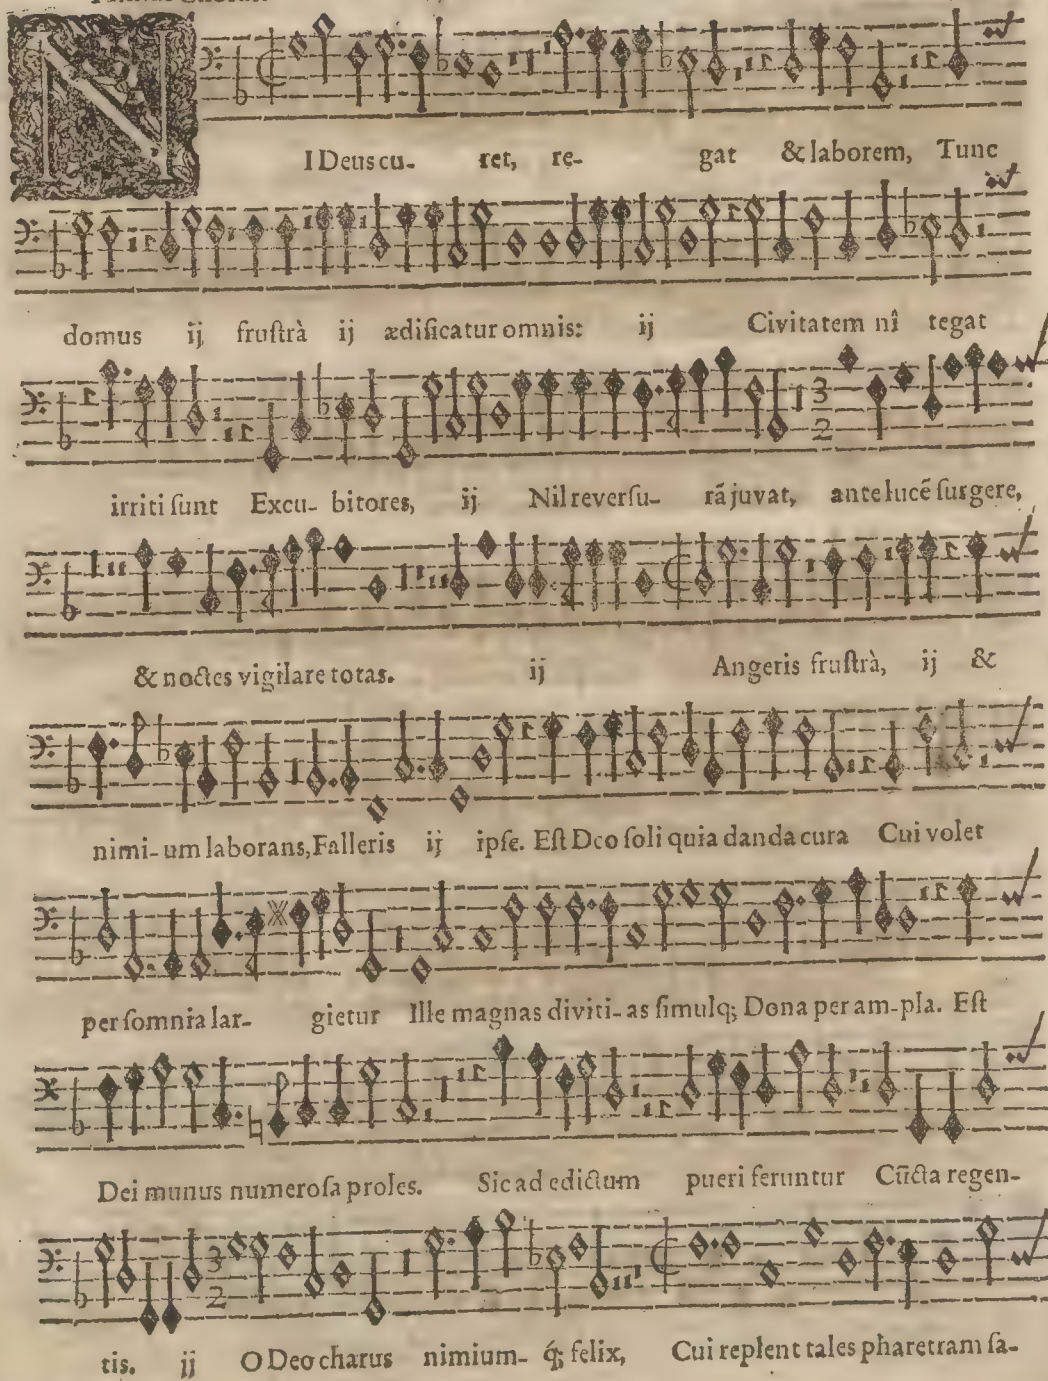 NI Deus cu- ret, re- gat & laborem, Tunc
domus ij fruſtrà ij ædificatur omnis: ij Civitatem nî tegat
irriti ſunt Excu- bitores, ij Nil reverſu- rā juvat, ante lucē ſurgere,
& noctes vigilare totas. ij Angeris fruſtrà, ij &
nimi- um laborans, Falleris ij ipſe. Eſt Deo ſoli quia danda cura Cui volet
per ſomnia lar- gietur Ille magnas diviti- as ſimulq; Dona per am- pla. Eſt
Dei munus numeroſa proles. Sic ad edictum pueri feruntur Cūcta regen-
tis. ij O Deo charus nimium- q́; felix, Cui replent tales pharetram ſa-